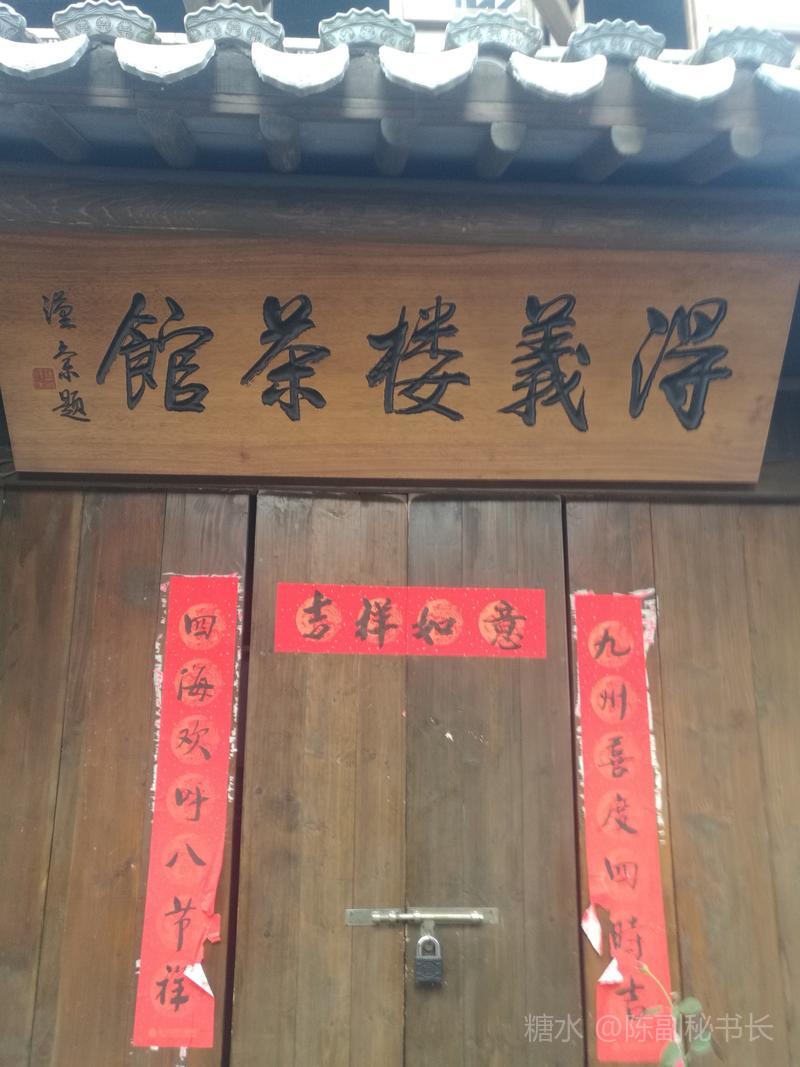 得義楼茶館
题
吉祥如意
九州喜度四時吉
四海欢呼八节祥
糖水 @陈副秘书长